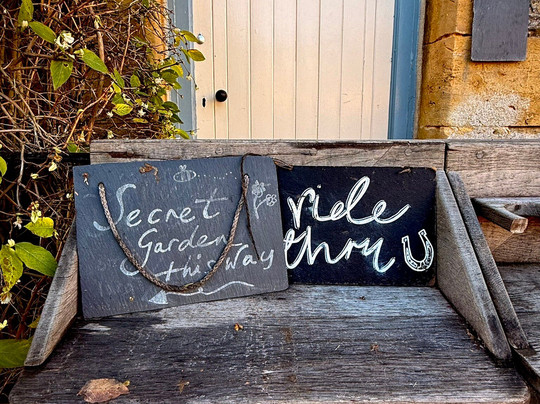 Secret
Garden
this way
ride
thru